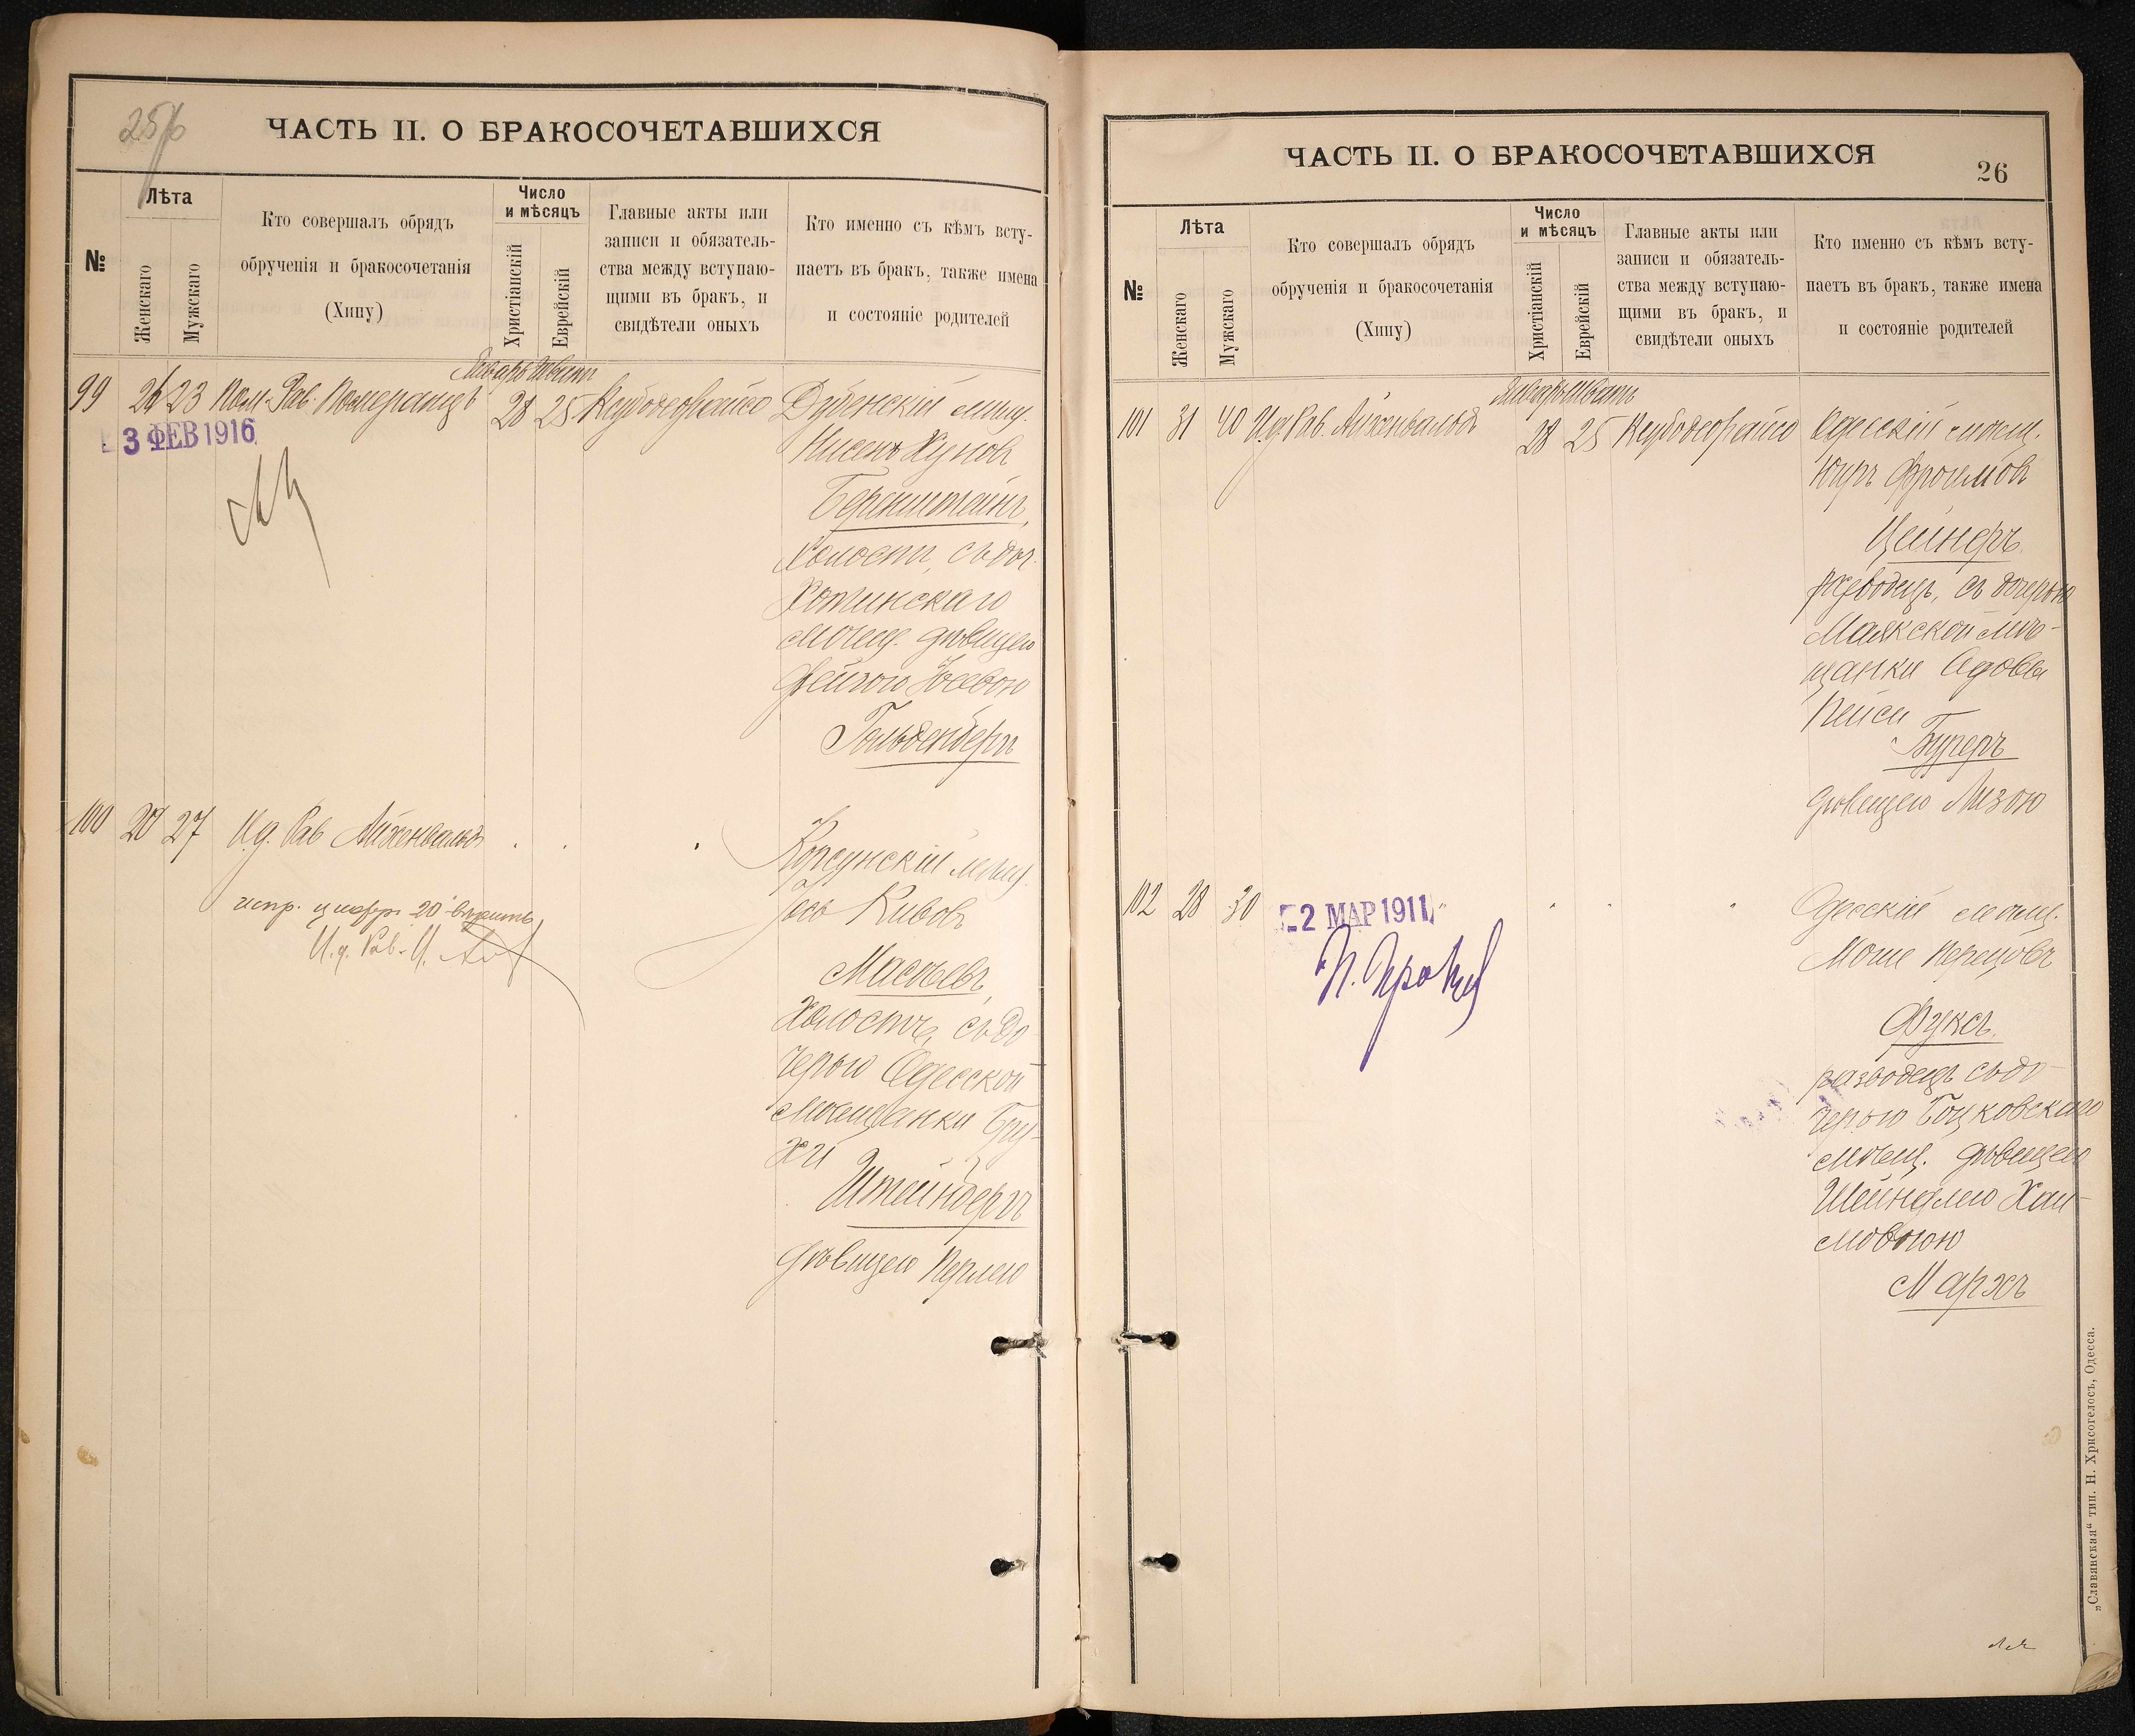 25/6
ЧАСТЬ II. О БРАКОСОЧЕТАВШИХСЯ
№
Лѣта
Женскаго
Мужскаго
Кто совершалъ обрядъ
обрученія и бракосочетанія
(Хипу)
Число
и мѣсяцъ
Христіанскій
Еврейскій
Главные акты или
записи и обязатель-
ства между вступаю-
щими въ бракъ, и
свидѣтели оныхъ
Кто именно съ кѣмъ всту-
паетъ въ бракъ, также имена
и состояніе родителей
Январь Шватъ
99 26 23 Пом. Рав. Померанцъ 28 25 Дубенскій мѣщ.
3 ФЕВ 1916
Нисенъ Хуновъ
Бернштейнъ,
холостъ, съ доч.
Хотинскаго
мѣщ. дѣвицею
Фейгою Іосевою
Гольденбергъ
100 20 27 И.д. Рав Айхенвальдъ
Корсунскій мѣщ.
Кивовъ
испр. цифр. 20 вѣрить
И.д. Рав.
холостъ, съ до-
черью Одесской
мѣщанки Бру-
хи
Штейнбергъ
дѣвицею Перлею
ЧАСТЬ II. О БРАКОСОЧЕТАВШИХСЯ
26
№
Лѣта
Женскаго
Мужскаго
Кто совершалъ обрядъ
обрученія и бракосочетанія
(Хипу)
Число
и мѣсяцъ
Христіанскій
Еврейскій
Главные акты или
записи и обязатель-
ства между вступаю-
щими въ бракъ, и
свидѣтели оныхъ
Кто именно съ кѣмъ всту-
паетъ въ бракъ, также имена
и состояніе родителей
Январь Шватъ
101 31 40 И.д. Рав. Айхенвальдъ 28 25 Одесскій мѣщ.
Фроимовъ
Цейнеръ
разводецъ, съ дочерью
Маякской мѣ-
щанки вдовы
Пейси
Бугеръ
дѣвицею Лизою
102 28 30 2 МАР 1911 Одесскій мѣщ.
Моше Перецовъ
Фуксъ
разводецъ съ до-
черью Боцковскаго
мѣщ. дѣвицею
Шейндлею Хаи-
мовною
Мархъ
„Славянская“ тип. Н. Хрисогелосъ, Одесса.